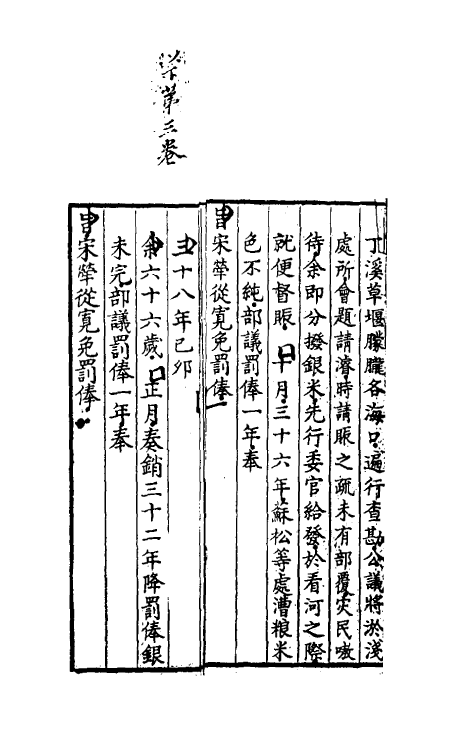 丁溪草堰朦朧各海口遍行查勘公議將淤淺
處所會題請濬時請賑之疏未有部覆灾民嗷
待余即分撥銀米先行委官給發於看河之際
就便督賑囗十月三十六年蘇松等處漕粮米
色不純部議罰俸一年奉
旨宋犖從寬免罰俸
三十八年己卯
余六十六歲囗正月奏銷三十二年降罰俸銀
未完部議罰俸一年奉
旨宋犖從寬免罰俸
以下第三卷